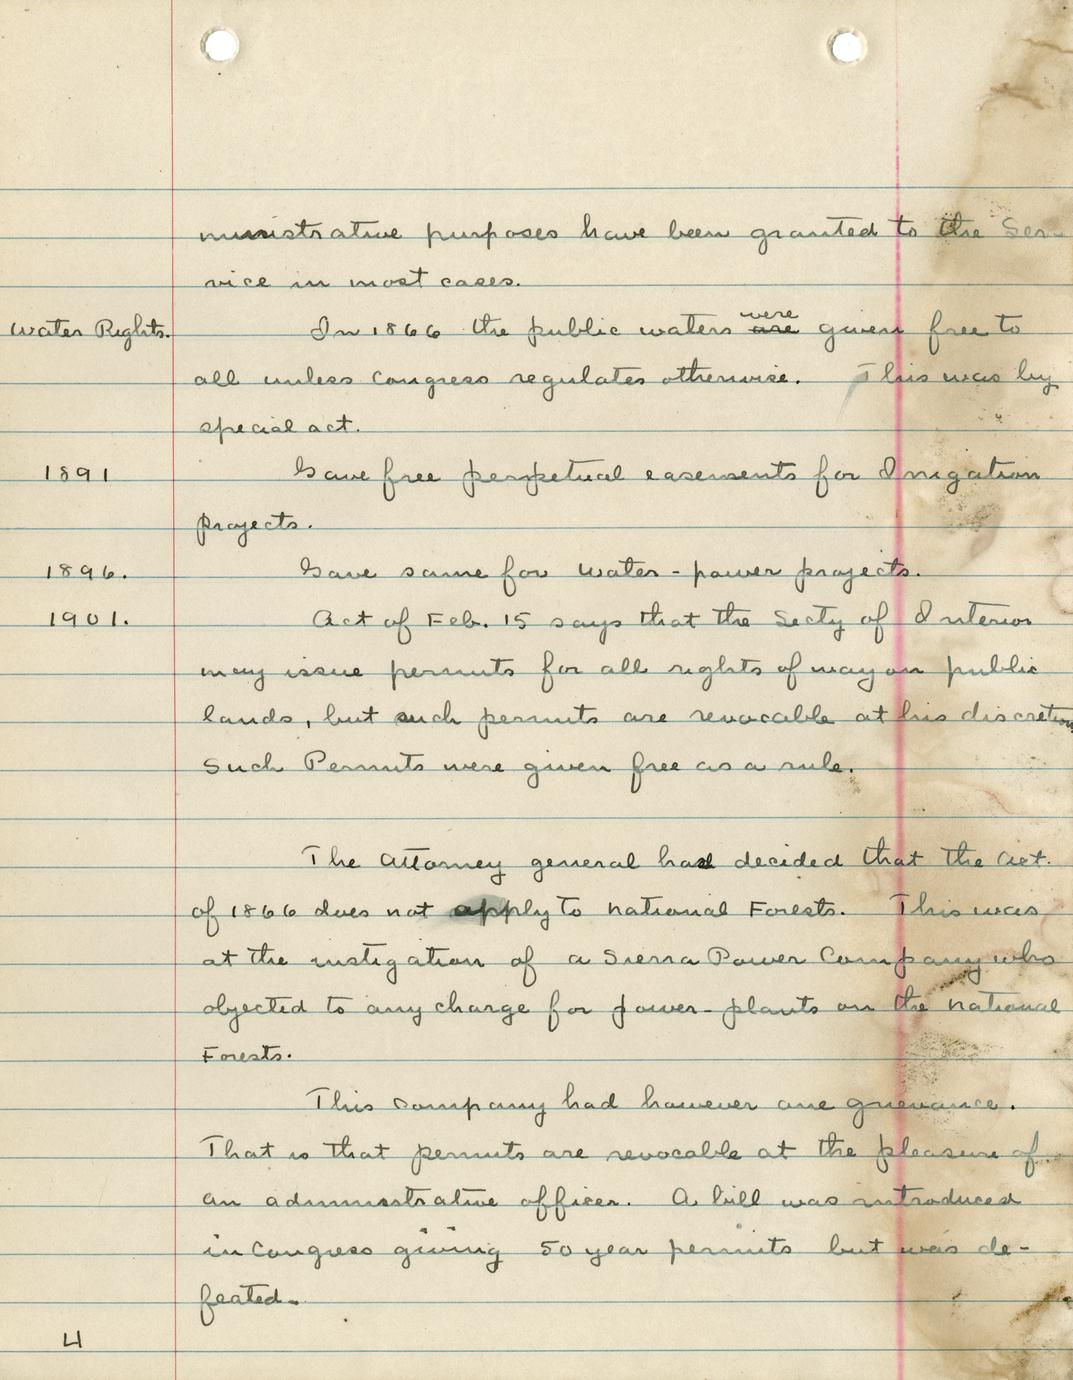 ministrative purposes have been granted to the Ser-
vice in most cases.
Water Rights. In 1866 the public waters were are given free to
all unless Congress regulates otherwise. This was by
special act.
1891 Gave free perpetual easements for Irrigation
projects.
1896. Gave same for water-power projects.
1901. Act of Feb. 15 says that the Secty of Interior
may issue permits for all rights of way on public
lands, but such permits are revocable at his discretion
Such Permits were given free as a rule.
The Attorney general had decided that the Act.
of 1866 does not apply to national Forests. This was
at the instigation of a Sierra Power Company who
objected to any charge for power-plants on the national
Forests.
This Company had however one grievance.
That is that permits are revocable at the pleasure of
an administrative officer. A bill was introduced
in Congress giving 50 year permits but was de-
feated.
4